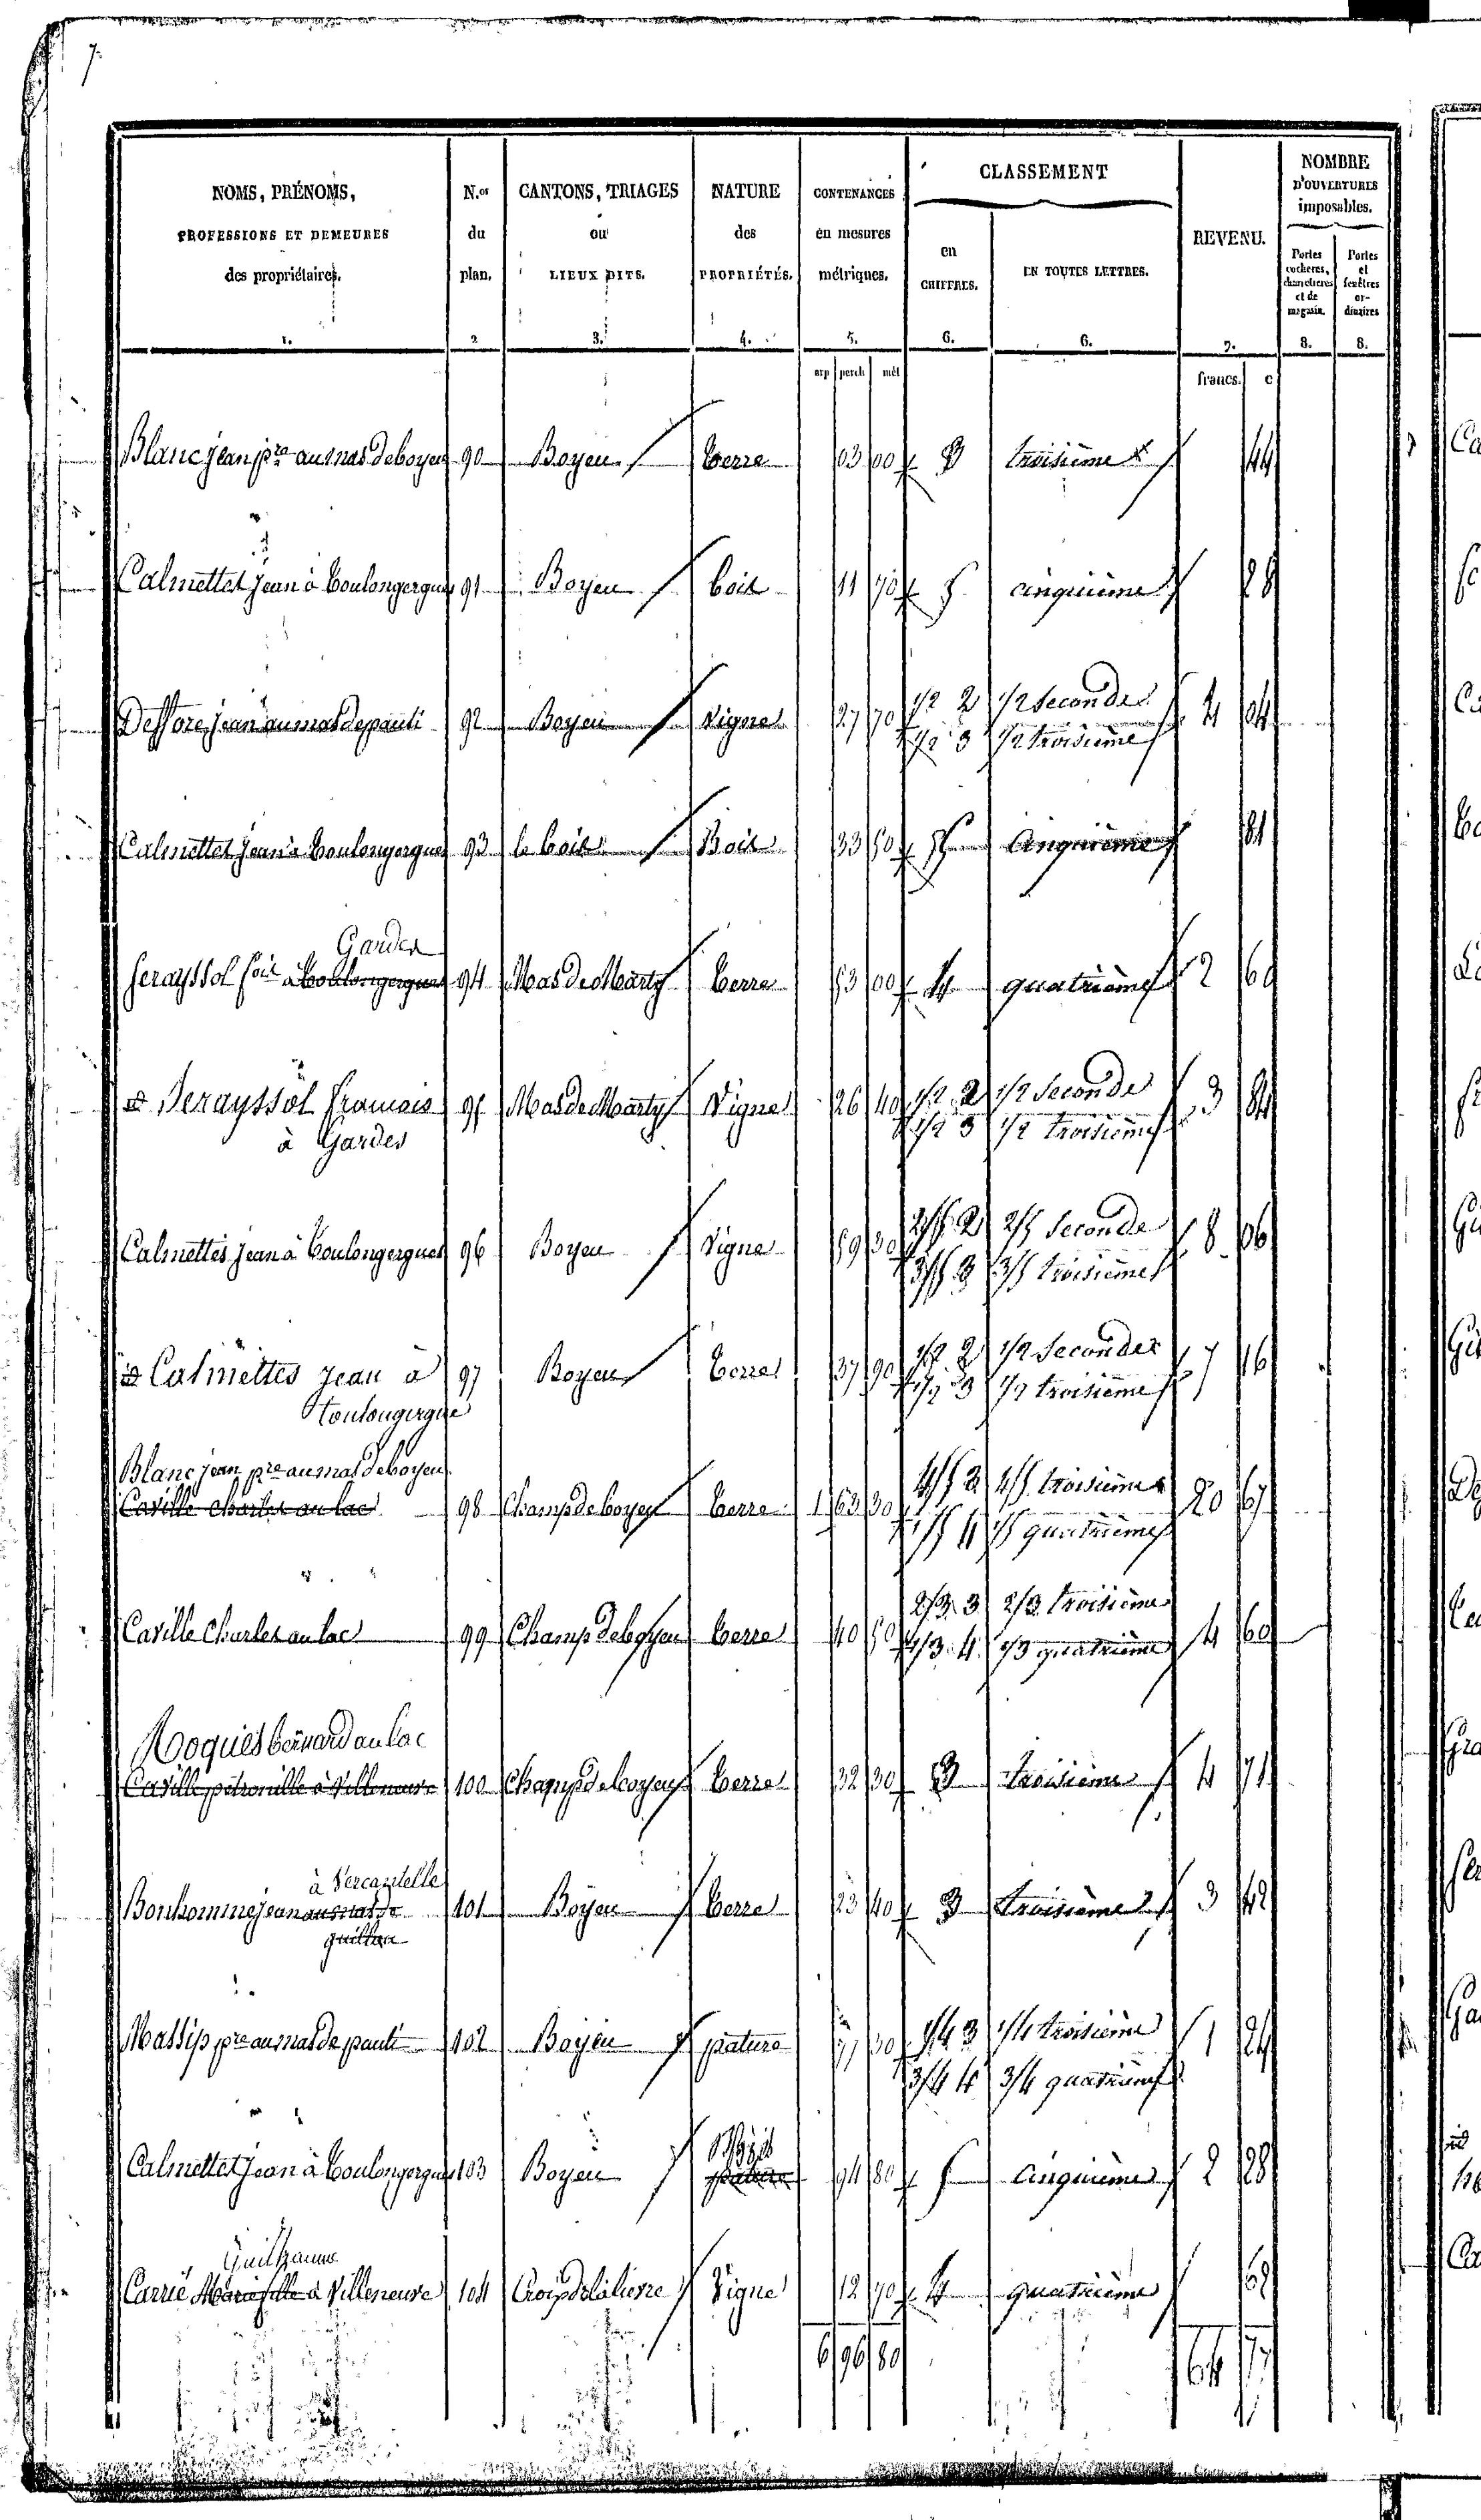 7.
NOMS, PRÉNOMS, PROFESSIONS ET DEMEURES des propriétaires. N.os du plan. CANTONS, TRIAGES ou LIEUX DITS. NATURE des PROPRIÉTÉS. CONTENANCES en mesures métriques. CLASSEMENT en CHIFFRES. EN TOUTES LETTRES. REVENU. NOMBRE D'OUVERTURES imposables. Portes cochères, charretières et de magasin. Portes et fenêtres ordinaires
1. 2 3. 4. 5. 6. 6. 7. 8. 8.
arp perch mèt francs. c
Blanc jean pre au mas de boyen 90 Boyen terre 03 00 3 troisieme 44
Calmettes jean à toulongergues 91 Boyen bois 11 70 5 cinquieme 28
Deffore jean au mas de pauti 92 Boyen Vigne 27 70 1/2 2 1/2 seconde 4 04
1/2 3 1/2 troisieme
Calmettes jean à toulongergues 93 le bois Bois 33 50 5 cinquieme 81
Gardes
ferayssol fois à toulongergues 94 Mas de Marty terre 53 00 4 quatrième 2 60
ferayssol francois 95 Mas de Marty Vigne 26 40 1/2 2 1/2 seconde 3 84
à Gardes 1/2 3 1/2 troisieme
Calmettes jean à toulongergues 96 Boyen Vigne 59 30 2/5 2 2/5 seconde 8 06
3/5 3 3/5 troisieme
Calmettes jean à 97 Boyen terre 37 90 1/2 2 1/2 seconde 7 16
toulongergue 1/2 3 1/2 troisieme
Blanc jean pre au mas de boyen
Caville charles au lac 98 Champ de boyen terre 1 63 30 4/5 3 4/5 troisieme 20 67
1/5 4 1/5 quatrieme
Caville Charles au lac 99 Champ de boyen terre 40 50 2/3 3 2/3 troisieme 4 60
1/3 4 1/3 quatrième
Roquies bernard au lac
Caville petronille à Villeneuve 100 Champ de boyen terre 32 30 3 troisieme 4 71
à Vercantelle
Bonhomme jean au mas de 101 Boyen terre 23 40 3 troisieme 3 42
guilhou
Massip pre au mas de pauti 102 Boyen pature 77 30 1/4 3 1/4 troisieme 1 24
3/4 4 3/4 quatrieme
Bois
Calmettes jean à toulongergues 103 Boyen pature 94 80 5 cinquieme 2 28
Guilhaume
Carrie Marie fille à Villeneuve 104 Croix de laliene Vigne 12 70 4 quatrieme 62
6 96 80 64 77